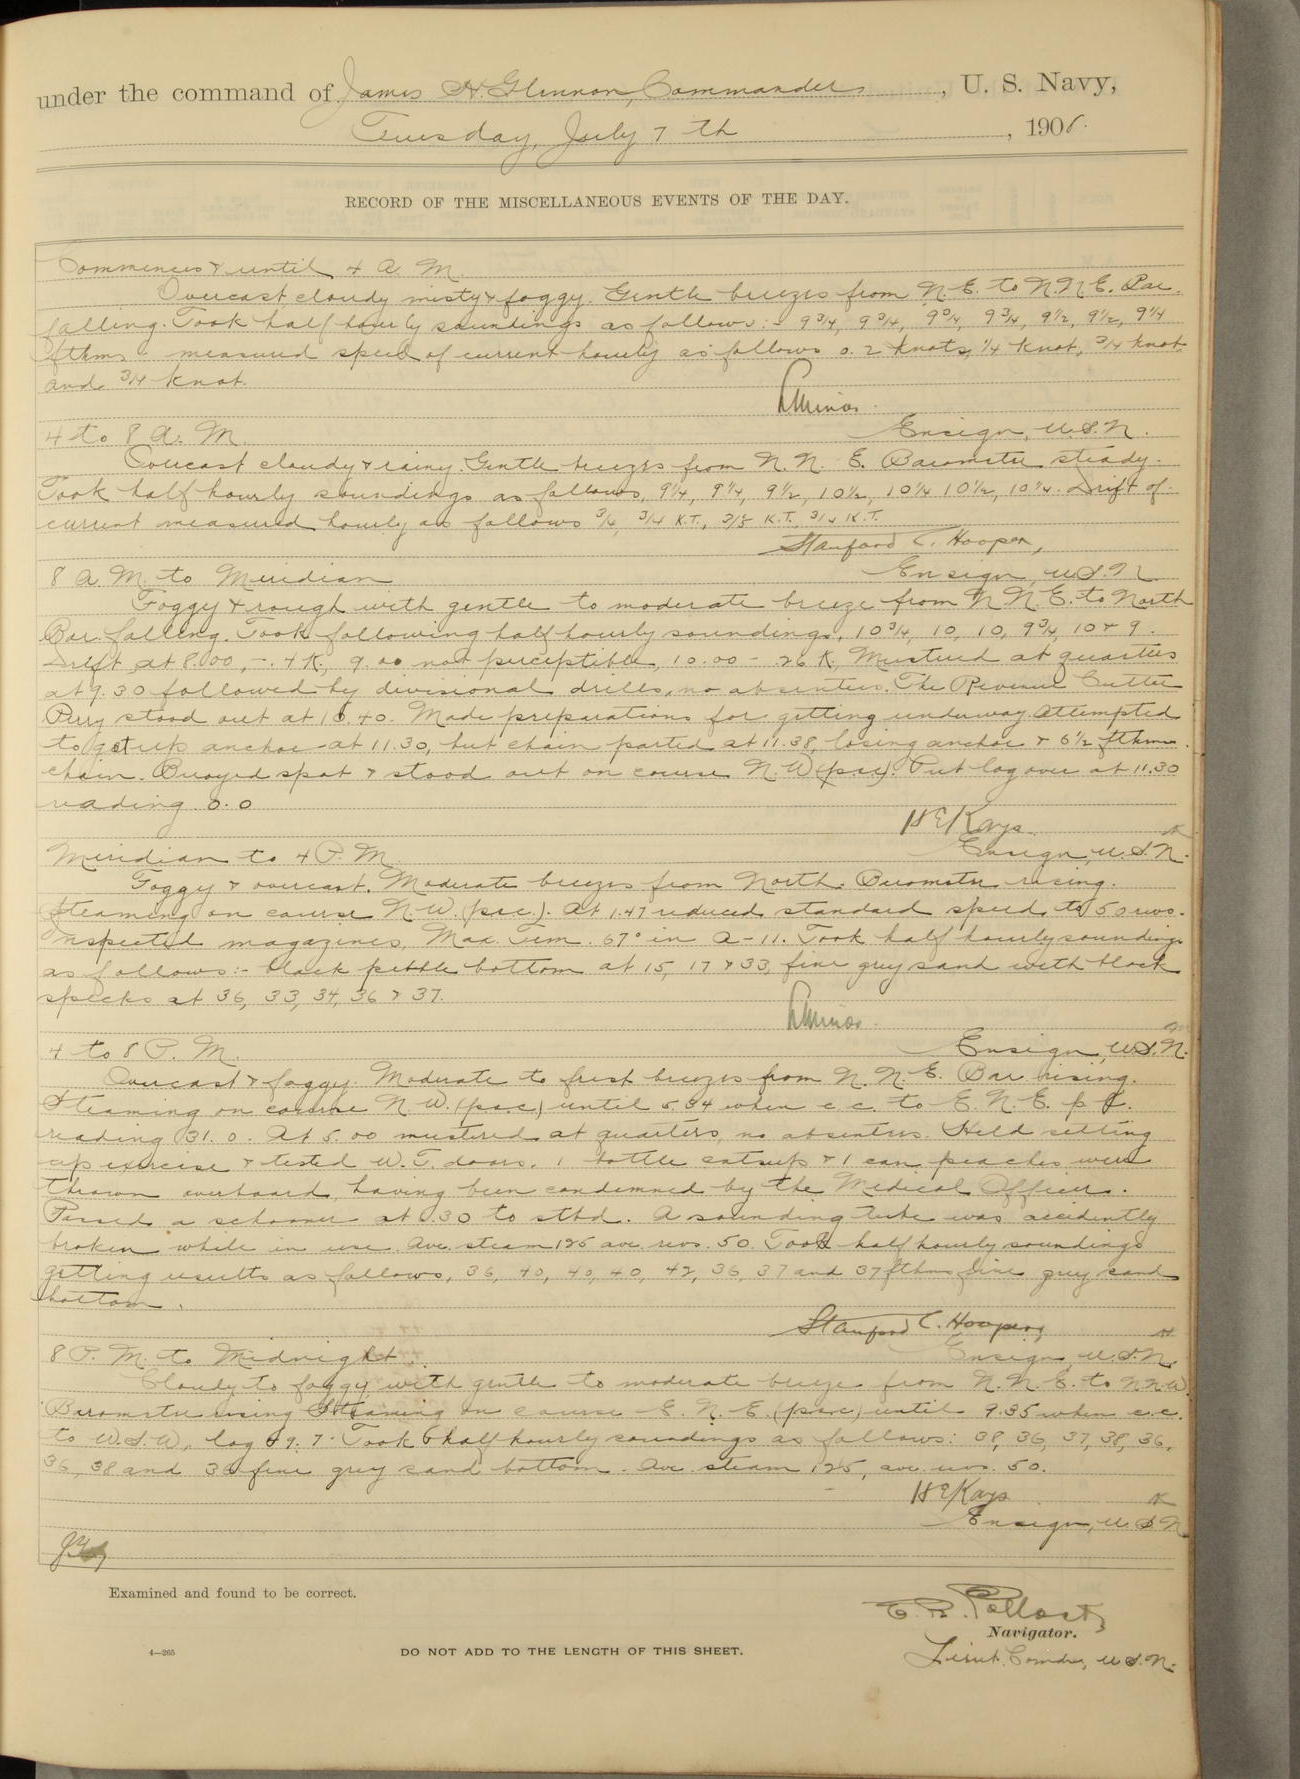 under the command of James H. Glennon, Commander, U. S. Navy,
Tuesday, July 7 th, 1908.
RECORD OF THE MISCELLANEOUS EVENTS OF THE DAY.
Commences & until 4 A. M.
Overcast cloudy misty & foggy. Gentle breezes from N.E. to N.N.E. Bar.
falling. Took half hourly soundings as follows:- 9 3/4, 9 3/4, 9 3/4, 9 3/4, 9 1/2, 9 1/2, 9 1/4
fthms. measured speed of current hourly as follows 0.2 knots, 1/4 knot, 3/4 knot
and 3/4 knot.
Ensign, U.S.N.
4 to 8 A. M.
Overcast cloudy & rainy. Gentle breezes from N. N. E. Barometer steady.
Took half hourly soundings as follows, 9 1/4, 9 1/4, 9 1/2, 10 1/2, 10 1/4 10 1/2, 10 1/4. Drift of
current measured hourly as follows 3/4, 3/4 K.T., K.T., 3/4 K.T.
Stanford C. Hooper,
Ensign, U.S.N.
8 A. M. to Meridian
Foggy & rough with gentle to moderate breeze from N N.E. to North
Bar. falling. Took following half hourly soundings, 10 3/4, 10, 10, 9 3/4, 10 & 9.
Drift at 8.00, -.4 K, 9.00 not perceptible, 10.00 - .26 K, Mustered at quarters
at 9.30 followed by divisional drills, no absentees. The Revenue Cutter
Perry stood out at 10.40. Made preparations for getting underway attempted
to get up anchor at 11.30, but chain parted at 11.38, losing anchor & 6 1/2 fthms
chain. Buoyed spot & stood out on course N.W (psc). Put log over at 11.30
reading 0.0
H E Kays
Ensign, U.S.N.
Meridian to 4 P. M
Foggy & overcast. Moderate breezes from North. Barometer rising.
Steaming on course N.W. (psc.). At 1.47 reduced standard speed to 50 revs.
Inspected magazines, Max. Tem. 67° in A-11. Took half hourly soundings
as follows:- black pebble bottom at 15, 17 & 33, fine grey sand with black
specks at 36, 33, 34, 36 & 37.
Ensign, U.S.N.
4 to 8 P. M.
Overcast & foggy. Moderate to fresh breezes from N. N. E. Bar rising.
Steaming on course N.W. (psc) until 5.34 when c.c. to E. N. E. p
reading 31.0. At 5.00 mustered at quarters, no absentees. Held setting
up exercise & tested W. T. doors. 1 bottle catsup & 1 can peaches were
thrown overboard, having been condemned by the Medical Officer.
Passed a schooner at .30 to stbd. A sounding tube was accidently
broken while in use. Ave. steam 125 ave revs. 50. Took half hourly soundings
getting results as follows, 36, 40, 40, 40, 42, 36, 37 and 37 fthms fine grey sand
bottom.
Stanford C. Hooper,
Ensign, U.S.N.
8 P. M. to Midnight.
Cloudy to foggy with gentle to moderate breeze from N. N. E. to N N.W.
Barometer rising Steaming on course E. N. E. (psc) until 9.35 when c.c.
to W.S.W, log 49.7. Took half hourly soundings as follows: 38, 36, 37, 38, 36,
36, 38 and 36 fine grey sand bottom. Ave. steam 125, ave. revs. 50.
H E Kays
Ensign, U.S.N
Examined and found to be correct.
Navigator.
4—265
DO NOT ADD TO THE LENGTH OF THIS SHEET.
Lieut. Comdr, U.S.N.